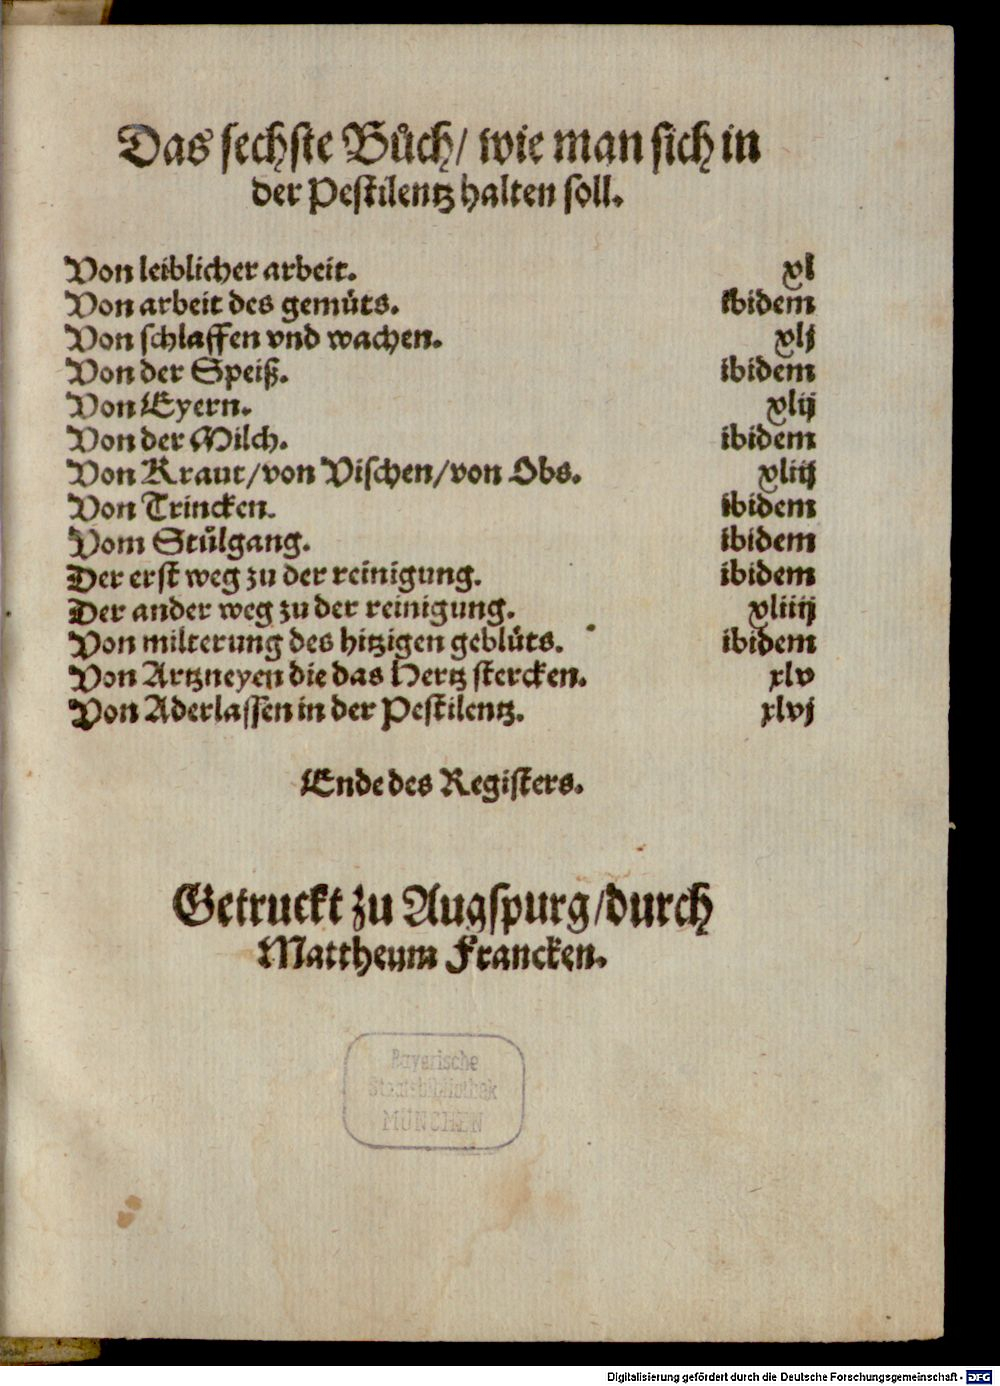 Das sechste Bůch/ wie man sich in
der Pestilentz halten soll.
Von leiblicher arbeit. xl
Von arbeit des gemůts. ibidem
Von schlaffen vnd wachen. xlj
Von der Speiß. ibidem
Von Eyern. xlij
Von der Milch. ibidem
Von Kraut/von Vischen/von Obs. xliij
Von Trincken. ibidem
Vom Stůlgang. ibidem
Der erst weg zu der reinigung. ibidem
Der ander weg zu der reinigung. xliiij
Von milterung des hitzigen geblůts. ibidem
Von Artzneyen die das Hertz stercken. xlv
Von Aderlassen in der Pestilentz. xlvj
Ende des Registers.
Getruckt zu Augspurg/durch
Mattheum Francken.
Bayerische
Staatsbibliothek
MÜNCHEN
Digitalisierung gefördert durch die Deutsche Forschungsgemeinschaft - DFG